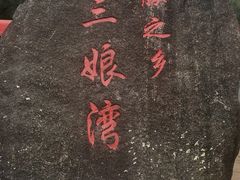 之乡
三娘湾